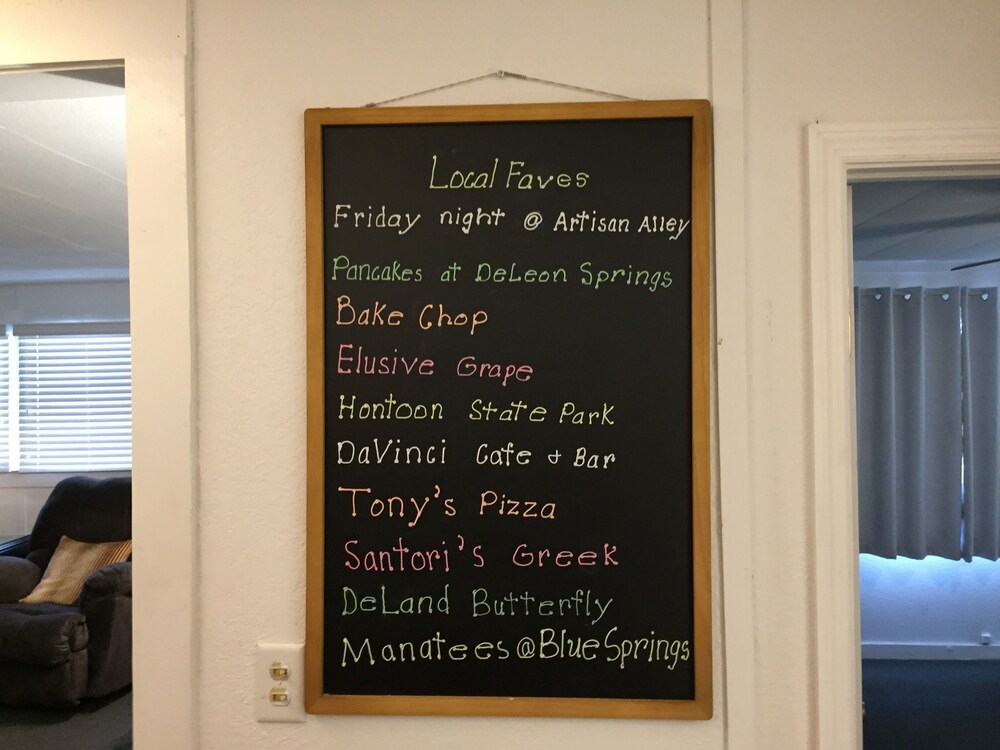 Local Faves
Friday night @ Artisan Alley
Pancakes at DeLeon Springs
Bake Chop
Elusive Grape
Hontoon State Park
DaVinci Cafe & Bar
Tony's Pizza
Santori's Greek
DeLand Butterfly
Manatees @ Blue Springs